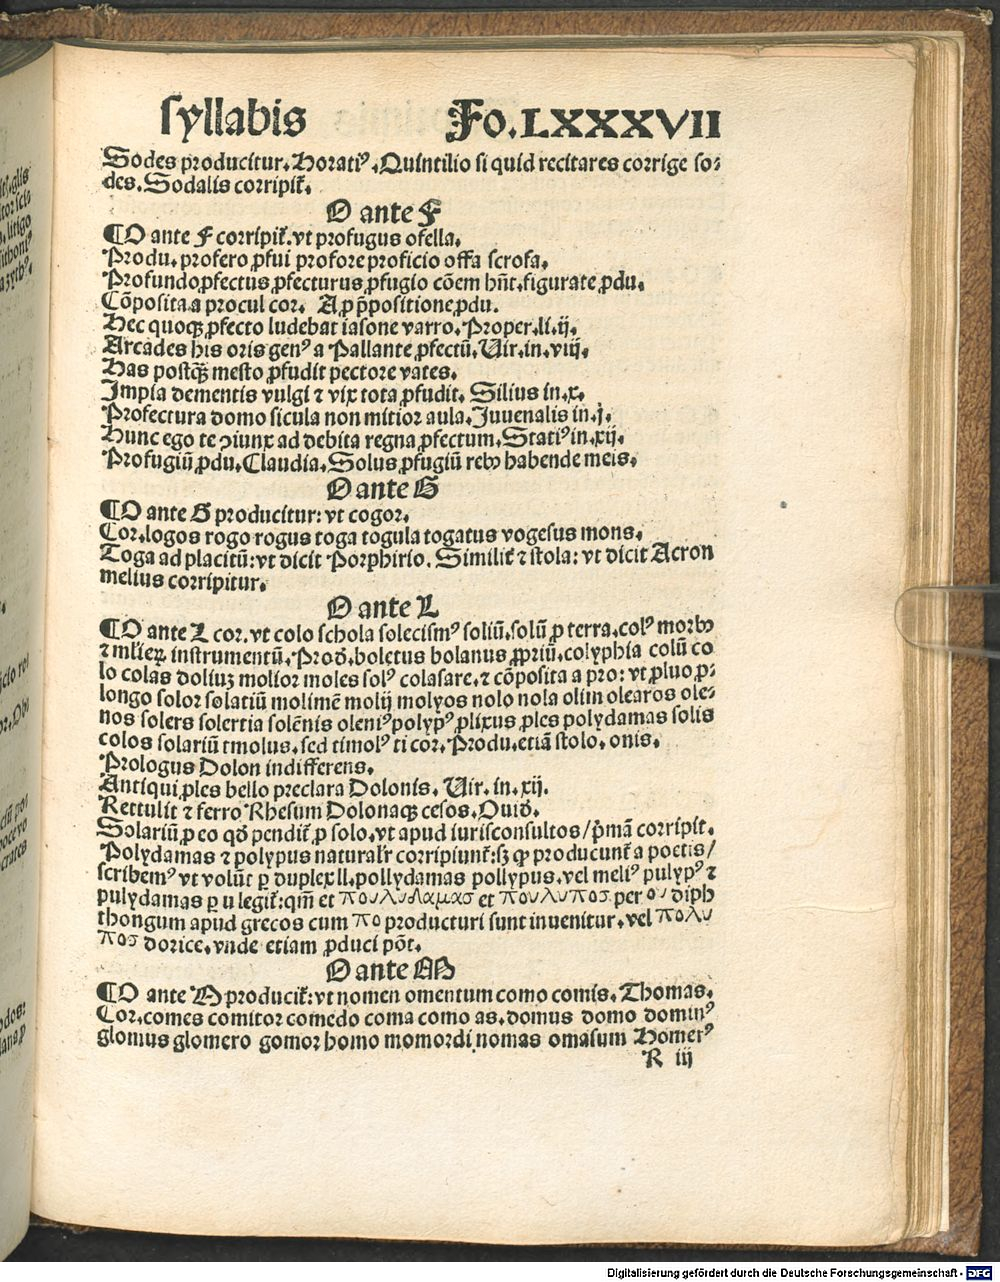 syllabis Fo. LXXXVII
Sodes producitur. Horatiꝰ. Quintilio si quid recitares corrige so-
des. Sodalis corripit̃.
O ante F
¶O ante F corripit̃. vt profugus ofella.
Produ. profero ꝓfui profore proficio offa scrofa.
Profundo ꝓfectus ꝓfecturus ꝓfugio cōem hñt. figurate ꝓdu.
Cōposita a procul cor. A ꝓ p̄positione ꝓdu.
Hec quoqꝫ ꝓfecto ludebat iasone varro. Proper. li. ij.
Arcades his oris genꝰ a Pallante ꝓfectū. Uir. in. viij.
Has postqꝫ̃ mesto ꝓfudit pectore vates.
Impia dementis vulgi ⁊ vix tota ꝓfudit. Silius in. x.
Profectura domo sicula non mitior aula. Juuenalis in. j.
Hunc ego te ↄiunx ad debita regna ꝓfectum. Statiꝰ in. xij.
Profugiū ꝓdu. Claudia. Solus ꝓfugiū rebꝰ habende meis.
O ante G
¶O ante G producitur: vt cogor.
Cor. logos rogo rogus toga togula togatus vogesus mons.
Toga ad placitū: vt dicit Porphirio. Similit̃ ⁊ stola: vt dicit Acron
melius corripitur.
O ante L
¶O ante L cor. vt colo schola solecismꝰ soliū. solū ꝓ terra. colꝰ morbꝰ
⁊ mlieꝝ instrumentū. Prod̄. boletus bolanus ꝓpriū. colyphia colū co
lo colas doliuꝫ molior moles solꝰ colasare. ⁊ cōposita a pro: vt ꝓluo ꝓ-
longo solor solatiū molimē molij molyos nolo nola olim olearos ole-
nos solers solertia solēnis oleniꝰ polypꝰ ꝓlixus ꝓles polydamas solis
colos solariū tmolus. sed timolꝰ ti cor. Produ. etiā stolo. onis.
Prologus Dolon indifferens.
Antiqui ꝓles bello preclara Dolonis. Uir. in. xij.
Rettulit ⁊ ferro Rhesum Dolonaqꝫ cesos. Ouid̄.
Solariū ꝓ eo qd̄ pendit̃ ꝓ solo. vt apud iurisconsultos / p̄mā corripit̃.
Polydamas ⁊ polypus naturalr̄ corripiunt̃: sꝫ qꝫ producunt̃ a poetis /
scribemꝰ vt volūt ꝑ duplex ll. pollydamas pollypus. vel meliꝰ pulypꝰ ⁊
pulydamas ꝑ u legit̃: qm̄ et πουλυδαμασ et πουλυποσ per ου diph
thongum apud grecos cum πο producturi sunt inuenitur. vel πολυ
ποσ dorice. vnde etiam ꝓduci pōt.
O ante M
¶O ante M producit̃: vt nomen omentum como comis. Thomas.
Cor. comes comitor comedo coma como as. domus domo dominꝰ
glomus glomero gomor homo momordi nomas omasum Homerꝰ
R iij
Digitalisierung gefördert durch die Deutsche Forschungsgemeinschaft - DFG